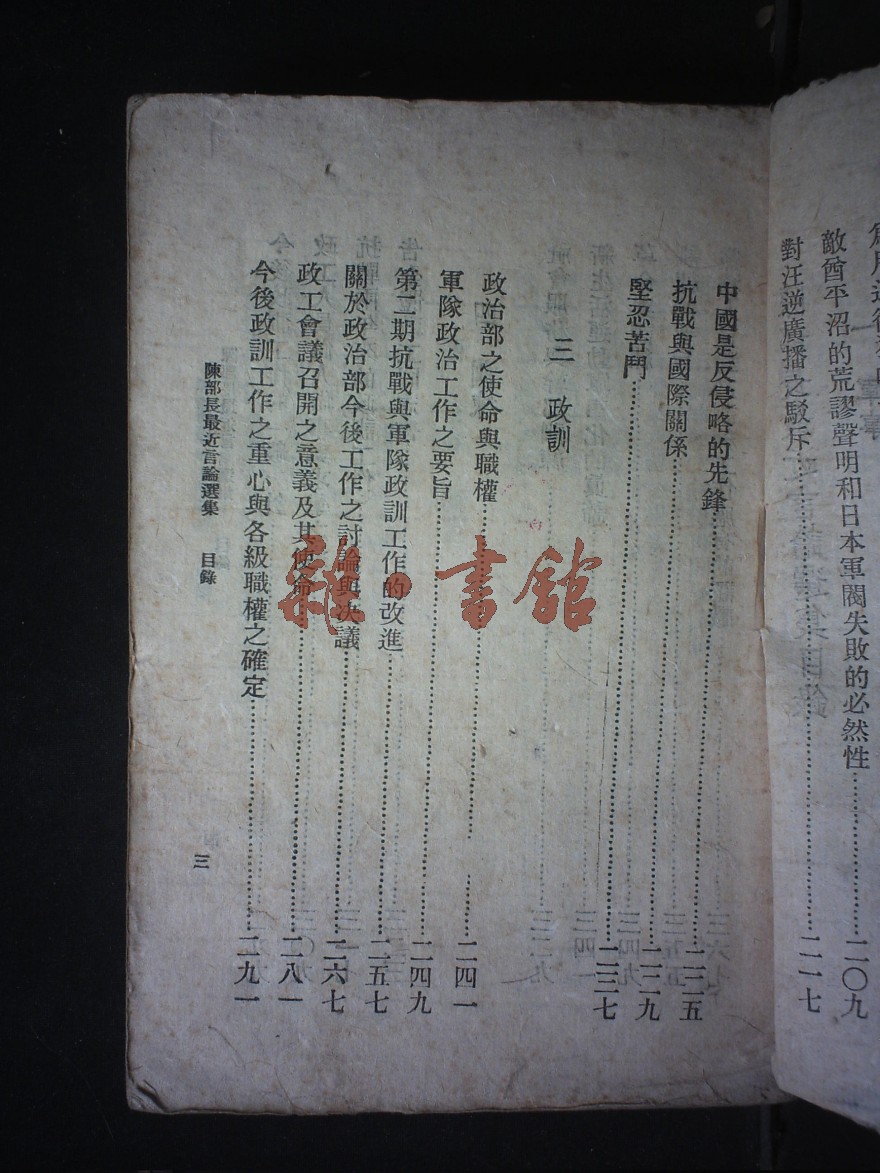 敵酋平沼的荒謬聲明和日本軍閥失敗的必然性……二〇九
對汪逆廣播之駁斥……二一七
中國是反侵略的先鋒……二二五
抗戰與國際關係……二二九
堅忍苦鬥……二三七
三 政訓
政治部之使命與職權……二四一
軍隊政治工作之要旨……二四九
第二期抗戰與軍隊政訓工作的改進……二五七
關於政治部今後工作之討論與決議……二六七
政工會議召開之意義及其使命……二八一
今後政訓工作之重心與各級職權之確定……二九一
陳部長最近言論選集 目錄 三
雜·書館